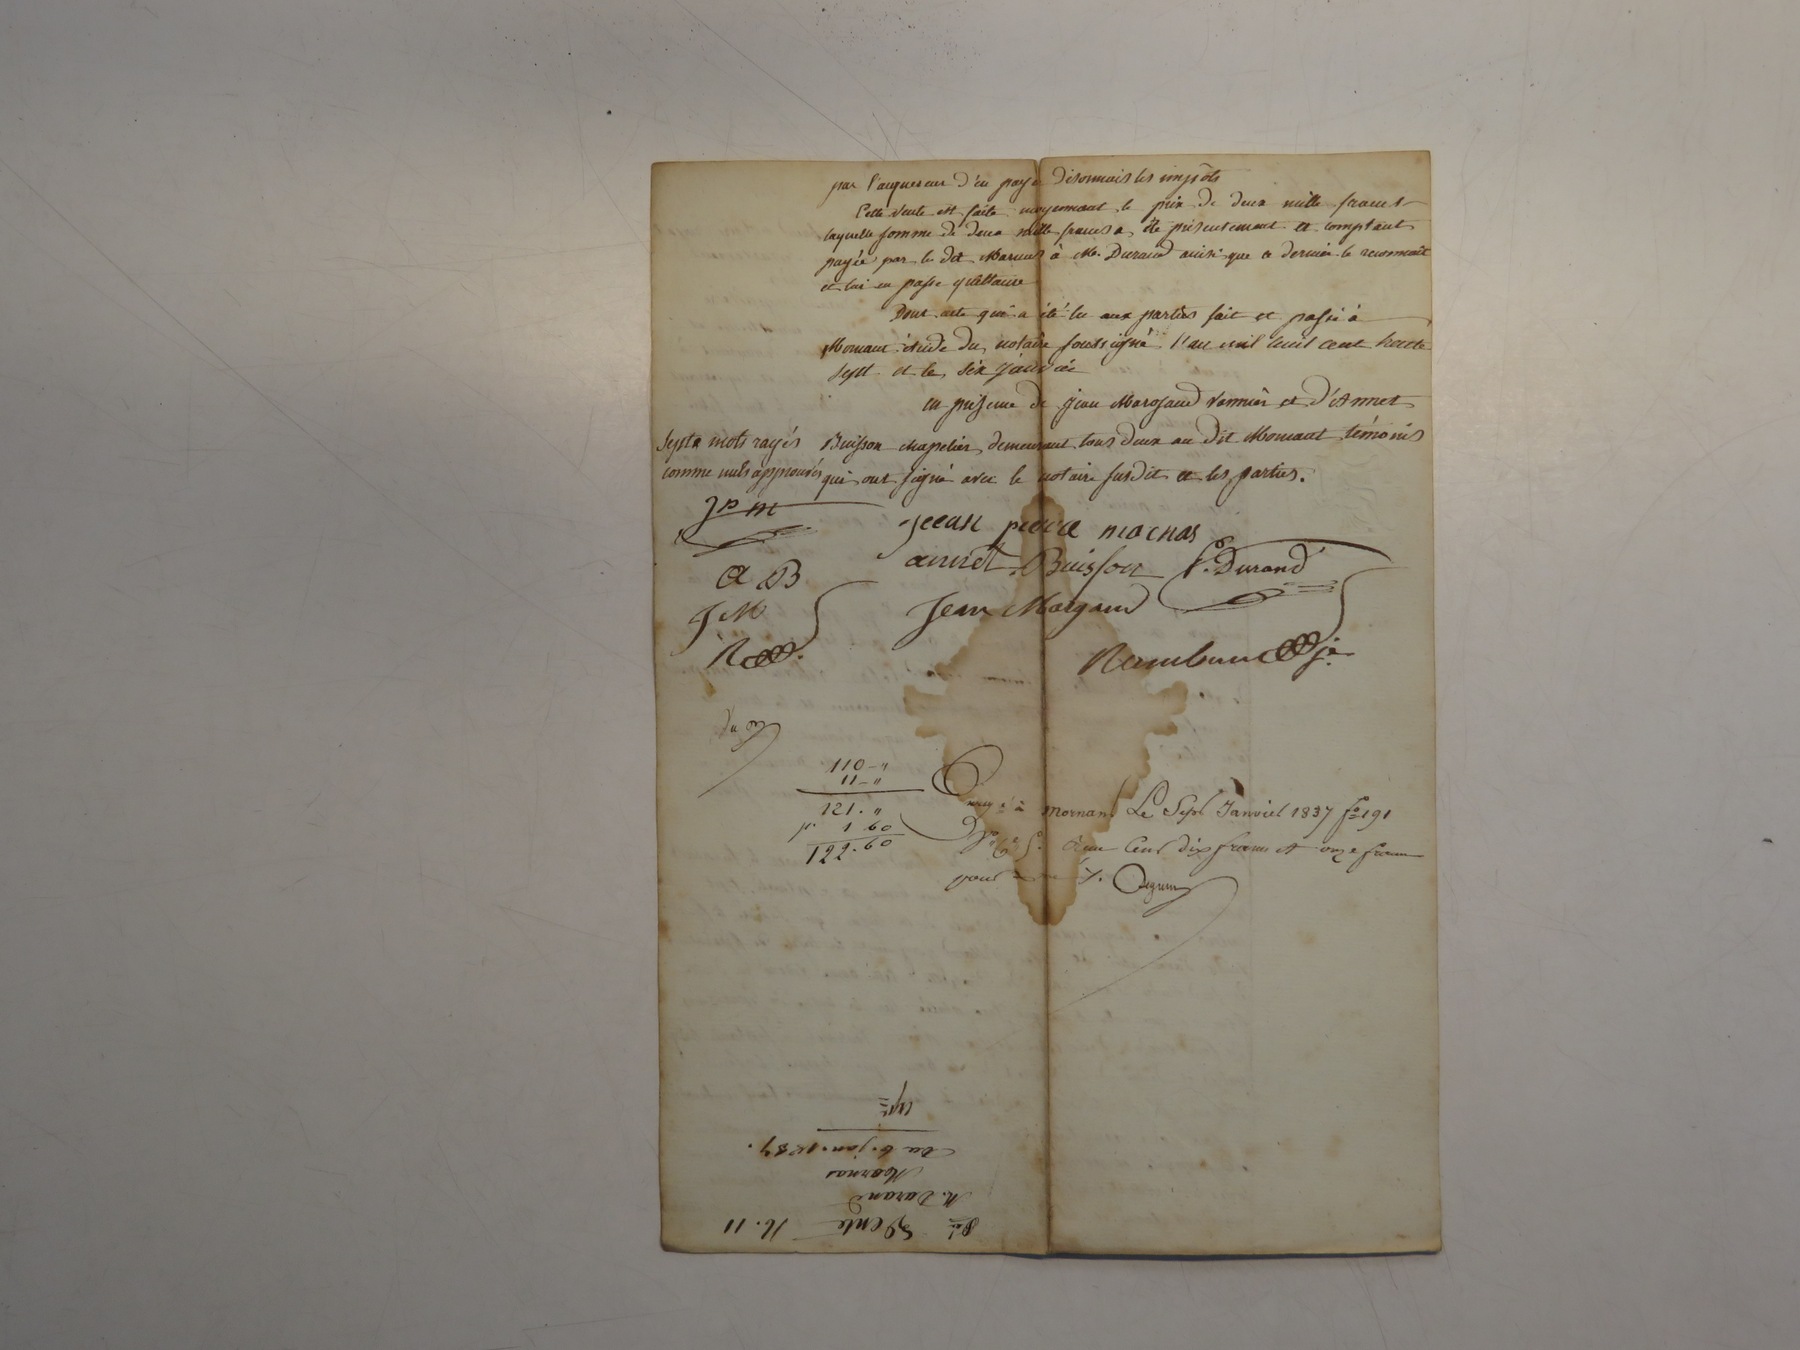 par l'acquereur d'en payer désormais les impôts
Cette vente est faite moyennant le prix de deux mille francs
laquelle somme de deux mille francs a été présentement et comptant
payée par le dit Marnas à Me. Durand ainsi que ce dernier le reconnait
et lui en passe quittance
Dont acte qui a été lu aux parties fait et passé à
Mornant étude du notaire soussigné l'an mil huit cent trente
sept et le six janvier
en présence de Jean Margaud vannier et d'Annet
Buisson chapelier demeurant tous deux au dit Mornant témoins
qui ont signé avec le notaire susdit et les parties.
Septs mots rayés
comme nuls approuvés
Jp m
A B
J M
R
jeean pierre marnas
annet Buisson P. Durand
Jean Margaud
110 - "
11 - "
121. "
1 60
122.60
à Mornant Le Sept Janvier 1837 fo 191
Reçu Cent dix francs et onze francs
pour
Vente N. 11
M. Durand
Marnas
Du 6. jan. 1837.